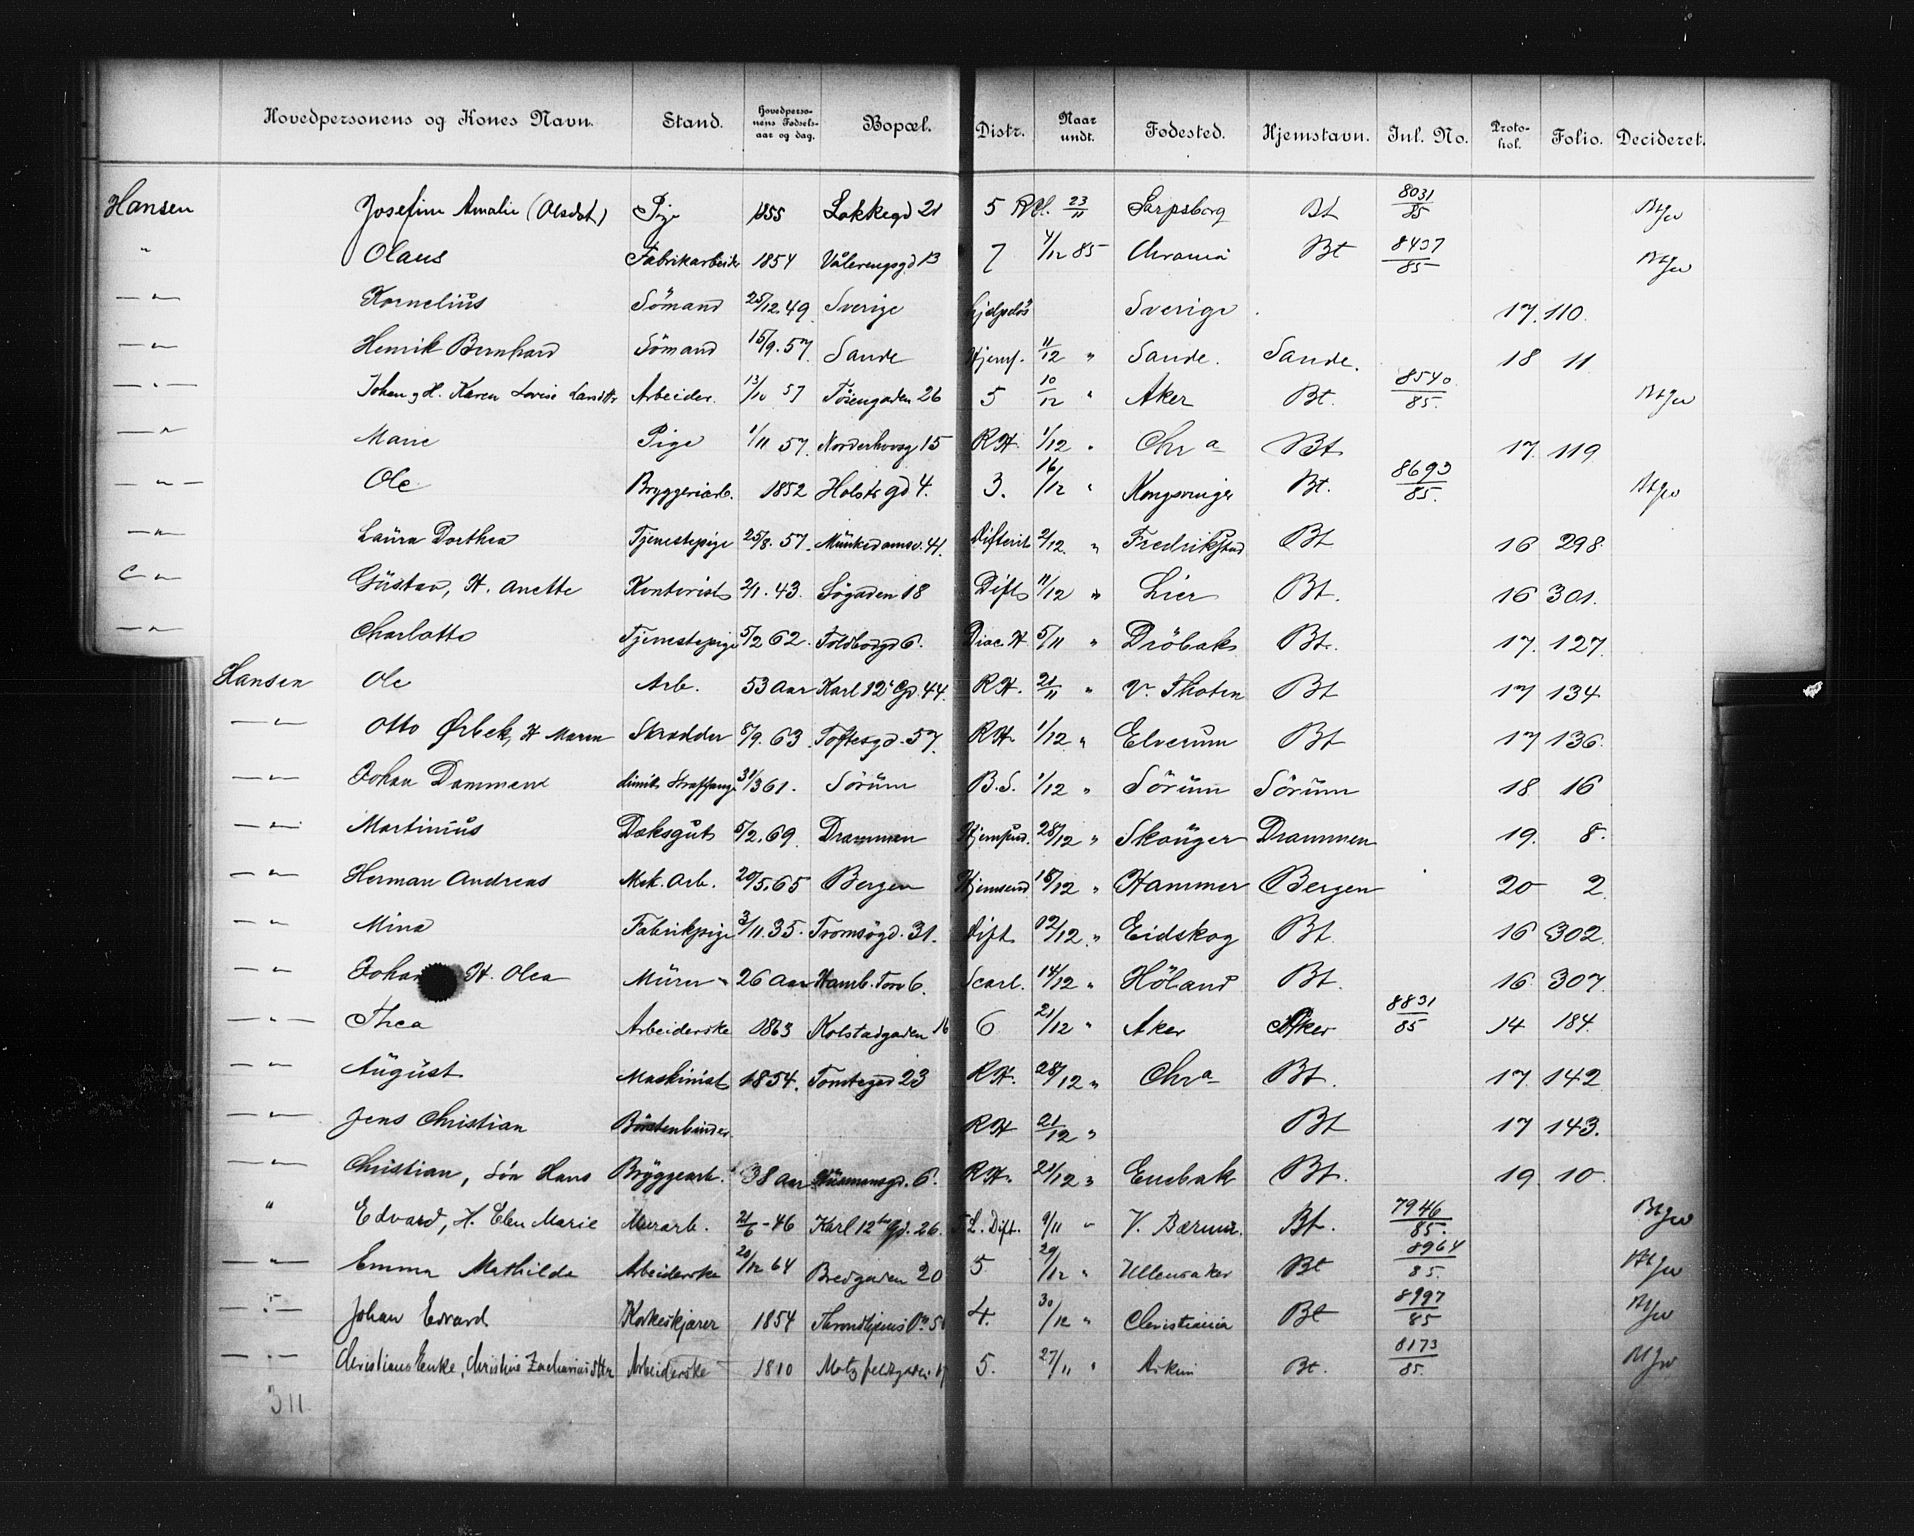 Hovedpersonens og Kones Navn. Stand. Hovedpersonens Fødselsaar og dag. Bopæl. Distr. Naar undt. Fødested. Hjemstavn. Jnl. No. Protokol. Folio. Decideret.
Hansen Josefine Amalie (Olsdat) Pige 1855 Løkkegd 21 5 23/11 Sarpsborg Bt 8031/85
" Olaus Fabrikarbeid 1854 Vålerengsgd 13 7 4/12 85 Chrania Bt 8437/85
— " — Kornelius Sömand 25/12.49 Sverige Hjelpelös Sverige 17. 110
— " Henrik Bernhard Sömand 15/9.57. Sande Hjemf. 11/12 " Sande. Sande. 18 11
— " — Johan g H. Karen Lovise Arbeider. 13/10 57 Töiengaden 26 5 10/12 " Aker Bt. 8540/85.
— " Marie Pige 1/11 57. Norderhovsg 15 RH. 1/12 " Chra Bt 17. 119
— " — Ole Bryggeriarb. 1852 Holsts gd 4. 3. 16/12 " Kongsvinger Bt. 8693/85.
— " Laura Dorthea Tjenestepige 25/8. 57. Munkedamsv. 41. Difterit 2/12 " Fredrikstad Bt 16 298
— " Gustav, H. Anette Kontorist 2/1. 43. Sögaden 18 Dift 11/12 " Lier Bt. 16 301.
— " Charlotte Tjenestepige 5/2 62. Toldbodgd 6. Diac. H 5/11 " Dröbak Bt. 17. 127.
Hansen Ole Arb. 53 Aar Karl 12' Gd 44. RH. 21/11 " V. Thoten Bt 17 134
— " Otto Ørbek, H Maren Skrædder 5/9. 63. Toftesgd. 57. RH. 1/12 " Elverum Bt 17 136.
— " Johan Dammend Straffange 31/3 61. Sörum B.S. 1/12 " Sörum Sörum 18 16
— " Martinius Dæksgut 5/2. 69. Drammen Hjemsend. 28/12 " Skouger Drammen 19. 8.
— " Herman Andreas Mek. Arb. 20/5.65 Bergen Hjemsend 18/12 " Hammer Bergen 20 2
— " Mina Fabrikpige 3/11.35. Tromsögd. 31. Dift 12/12 " Eidskog Bt. 16 302.
— " Johan H. Olea Murer 26 Aar Hamb. Torv 6. Scarl. 14/12 " Höland Bt. 16 307.
— " — Thea Arbeiderske 1863 Kolstadgaden 16 6 21/12 " Aker Aker 8831/85 14 184.
— " August Maskinist 1854. Tomtegd 23 RH. 28/12 " Chra Bt. 17. 142
— " — Jens Christian Börstenbinder. RH 21/12 " Bt 17 143.
— " Christian, Sön Hans Bryggearb. 38 Aar Husmansgd. 6. RH. 21/12 " Enebak Bt. 19 10
" Edvard, H. Elen Marie Murarb. 21/6 - 46 Karl 12te Gd. 26. Dift. 9/11 " V. Bærum. Bt. 7946/85.
— " — Emma Mathilde Arbeiderske 20/12 64 Bredgaden 20 5 29/12 " Ullensaker Bt 8964/85.
— " — Johan Edvard Korkeskjærer 1854 Throndhjems 4. 30/12 " Christiania Bt 8997/85
— " — Christians Enke, Christine Zachariasdttr Arbeiderske 1810 Motzfeldtgaden 17 5. 27/11 " Askim Bt. 8173/85.
311.